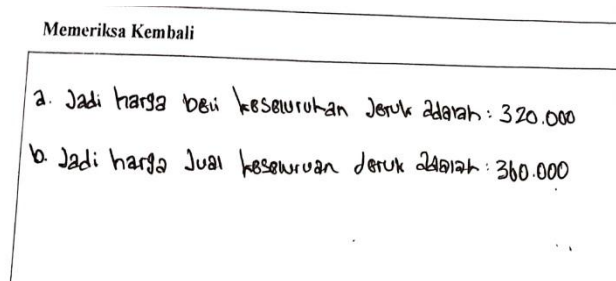 Memeriksa Kembali
a. Jadi harga beli keseluruhan Jeruk adalah : 320.000
b. Jadi harga Jual keseluruan Jeruk adalah : 360.000